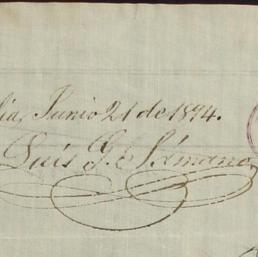 lia, Junio 21 de 1894.
Luís G. Sámano